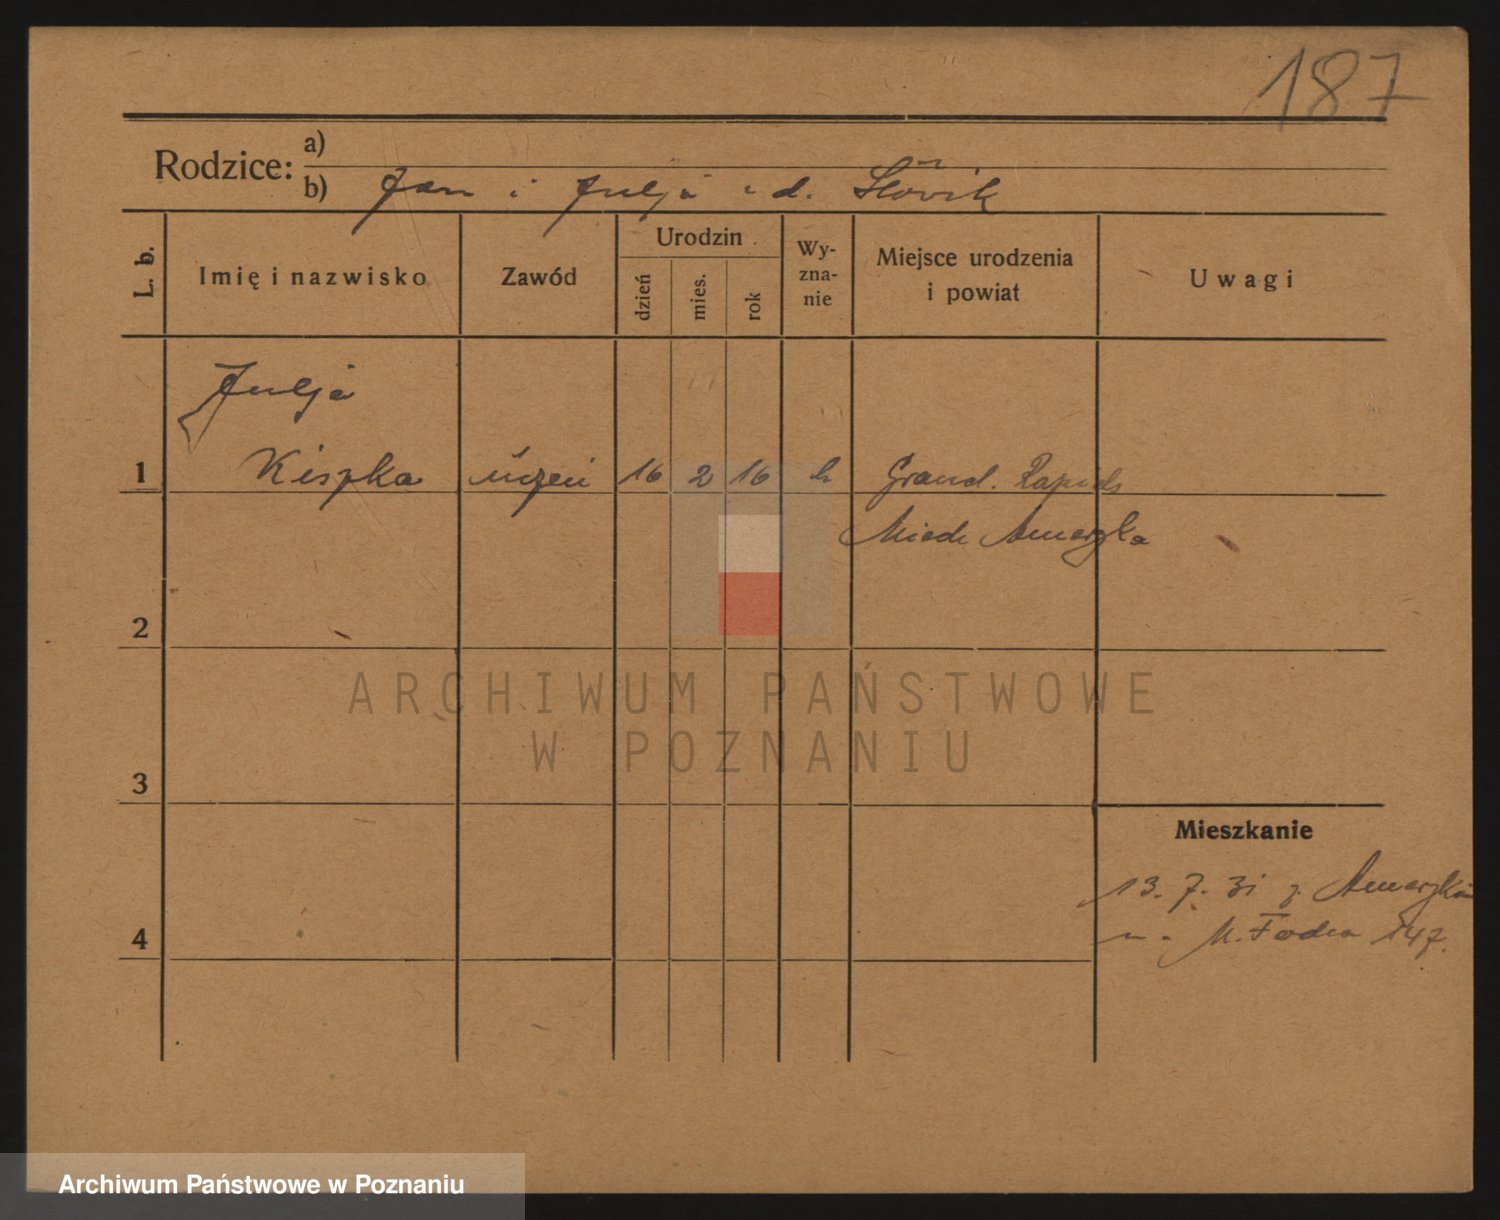 187
Rodzice: a)
b) Jan i Julja z d. Słovik
L. b.
Imię i nazwisko
Zawód
Urodzin
dzień
mies.
rok
Wy-
zna-
nie
Miejsce urodzenia
i powiat
Uwagi
Julja
1 Kiszka uczeń 16 2 16 k Grand. Rapids
Ameryka
2
3
Mieszkanie
13. 7. 31 z. Ameryki
4
147.
ARCHIWUM PAŃSTWOWE
W POZNANIU
Archiwum Państwowe w Poznaniu